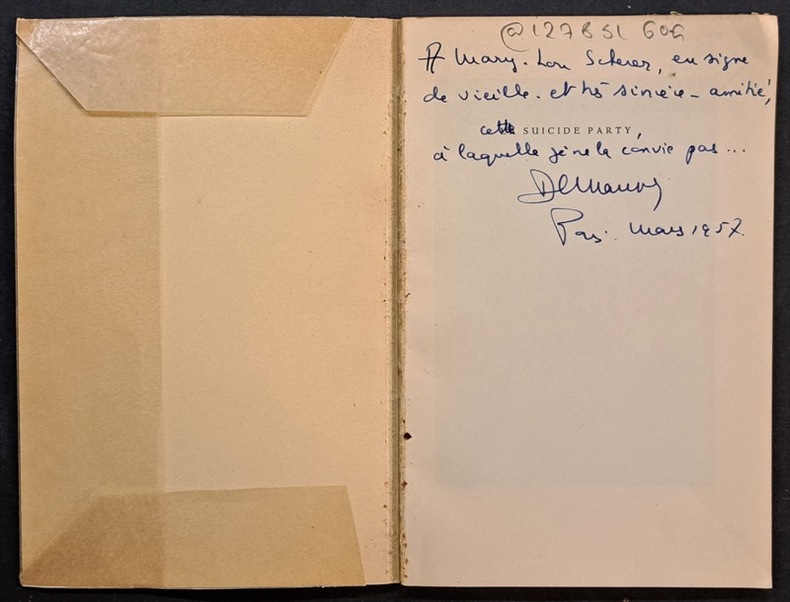 @127BSL 60G
A Mary-Lou Scherer, en signe
de vieille - et très sincère - amitié,
cette SUICIDE PARTY,
à laquelle je ne la convie pas...
Paris. Mars 1957.